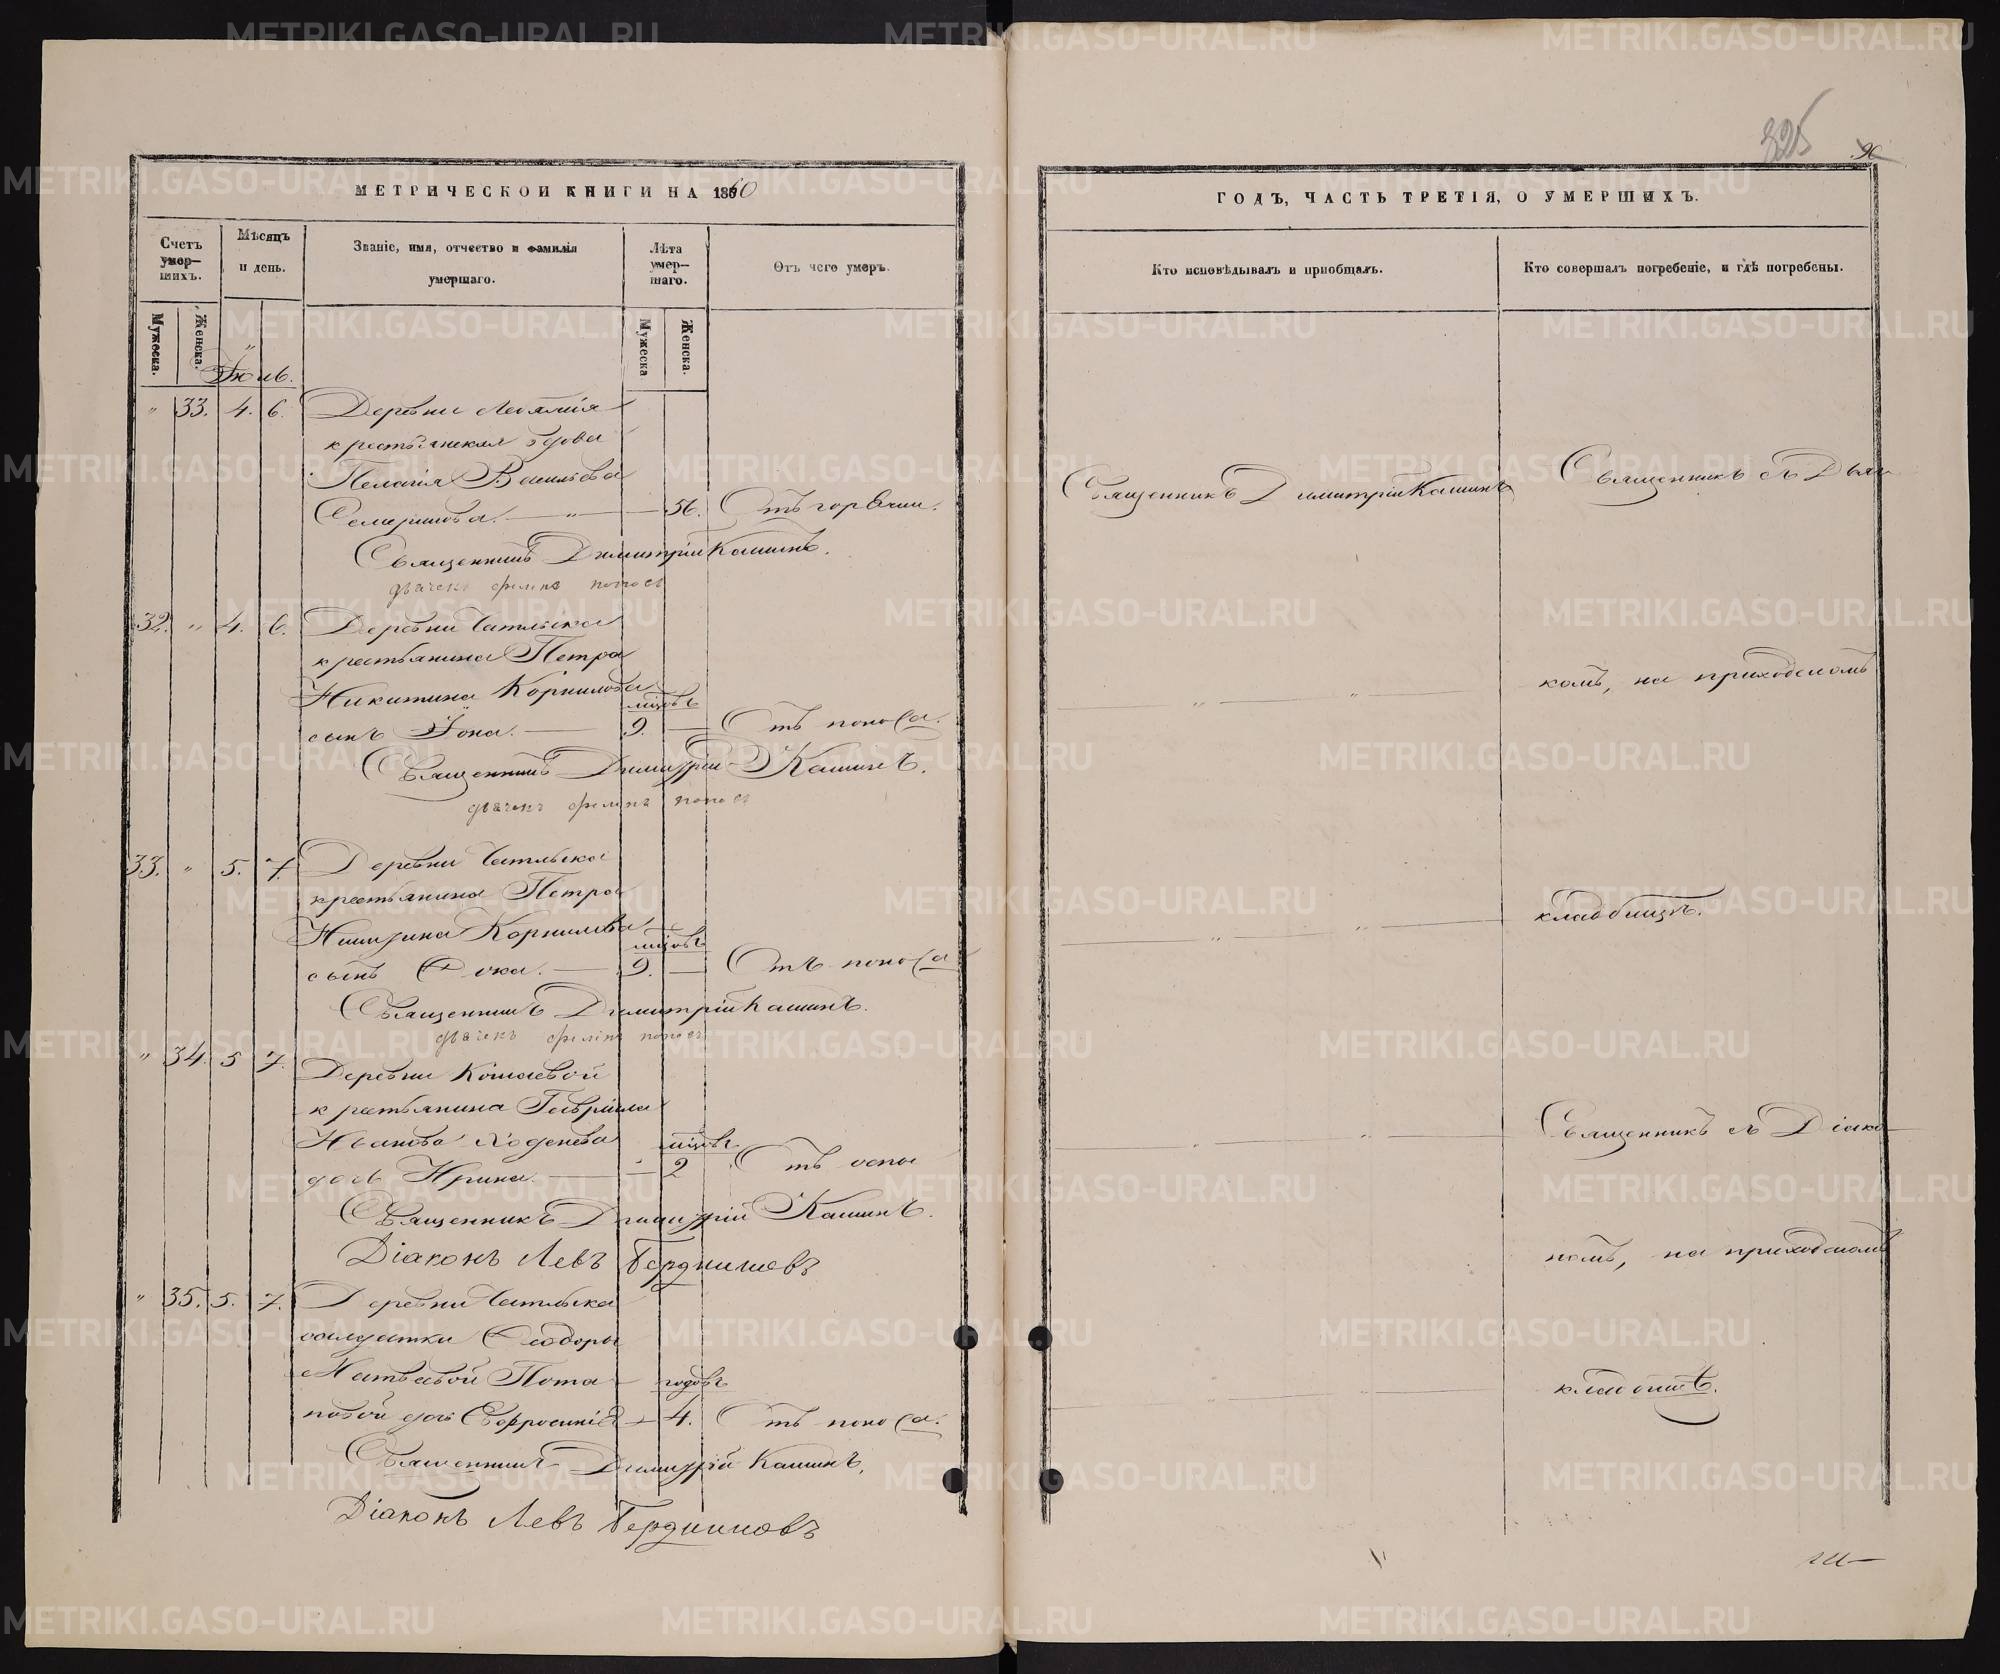 МЕТРИЧЕСКОЙ КНИГИ НА 1860
Счетъ умер-шихъ.
Мѣсяцъ и день.
Званіе, имя, отчество и фамилія умершаго.
Лѣта умер-шаго.
Отъ чего умеръ.
Мужеска.
Женска.
Мужеска
Женска.
Іюль.
" 33. 4. 6. Деревни
крестьянская вдова
Пелагія Васильева
— " — 56. Отъ горячки.
Священникъ Димитрій Кашинъ.
32. " 4. 6. Деревни Чатлыка
крестьянина Петра
Никитина Корнилова
мѣцовъ
сынъ Іона. — 9. — Отъ поноса.
Священникъ Димитрій Кашинъ.
33. " 5. 7. Деревни Чатлыка
крестьянина Петра
Никитина Корнилова
мѣцовъ
сынъ Ѳока. — 9. — Отъ поноса
Священникъ Димитрій Кашинъ.
" 34. 5 7. Деревни
крестьянина Гавріила
Иванова
мѣцовъ
дочь Ирина. — 2 Отъ оспы
Священникъ Димитрій Кашинъ.
Діаконъ Левъ Бердниковъ
" 35. 5. 7. Деревни Чатлыка
солдатки Ѳеодоры
Матвѣевой Пота-
годовъ
повой дочь Евфросинія — 4. Отъ поноса.
Священникъ Димитрій Кашинъ.
Діаконъ Левъ Бердниковъ
325
90
ГОДЪ, ЧАСТЬ ТРЕТІЯ, О УМЕРШИХЪ.
Кто исповѣдывалъ и пріобщалъ.
Кто совершалъ погребеніе, и гдѣ погребены.
Священникъ Димитрій Кашинъ
Священникъ съ Дьяч
комъ, на приходскомъ
кладбищѣ.
Священникъ съ Діако-
номъ, на приходскомъ
кладбищѣ.
METRIKI.GASO-URAL.RU